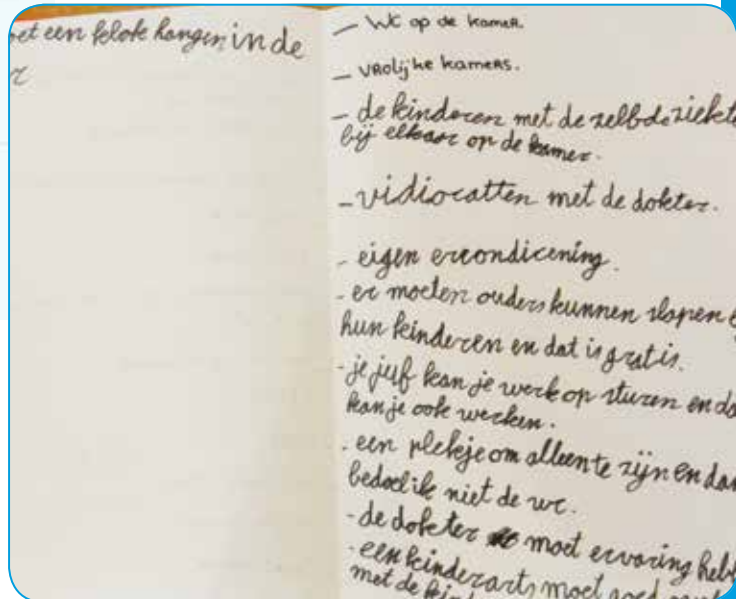 een klok hangen in de
- WC op de kamer.
- vrolijke kamers.
- de kinderen met de zelbde ziekte
bij elkaar op de kamer.
- vidiocatten met de dokter.
- eigen ercondicening.
- er moeten ouders kunnen slapen
hun kinderen en dat is gratis.
- je juf kan je werk op sturen en
kan je ook werken.
- een plekje om alleen te zijn en dan
bedoel ik niet de wc.
- de dokter moet ervaring
- een kinderarts moet goed
met de